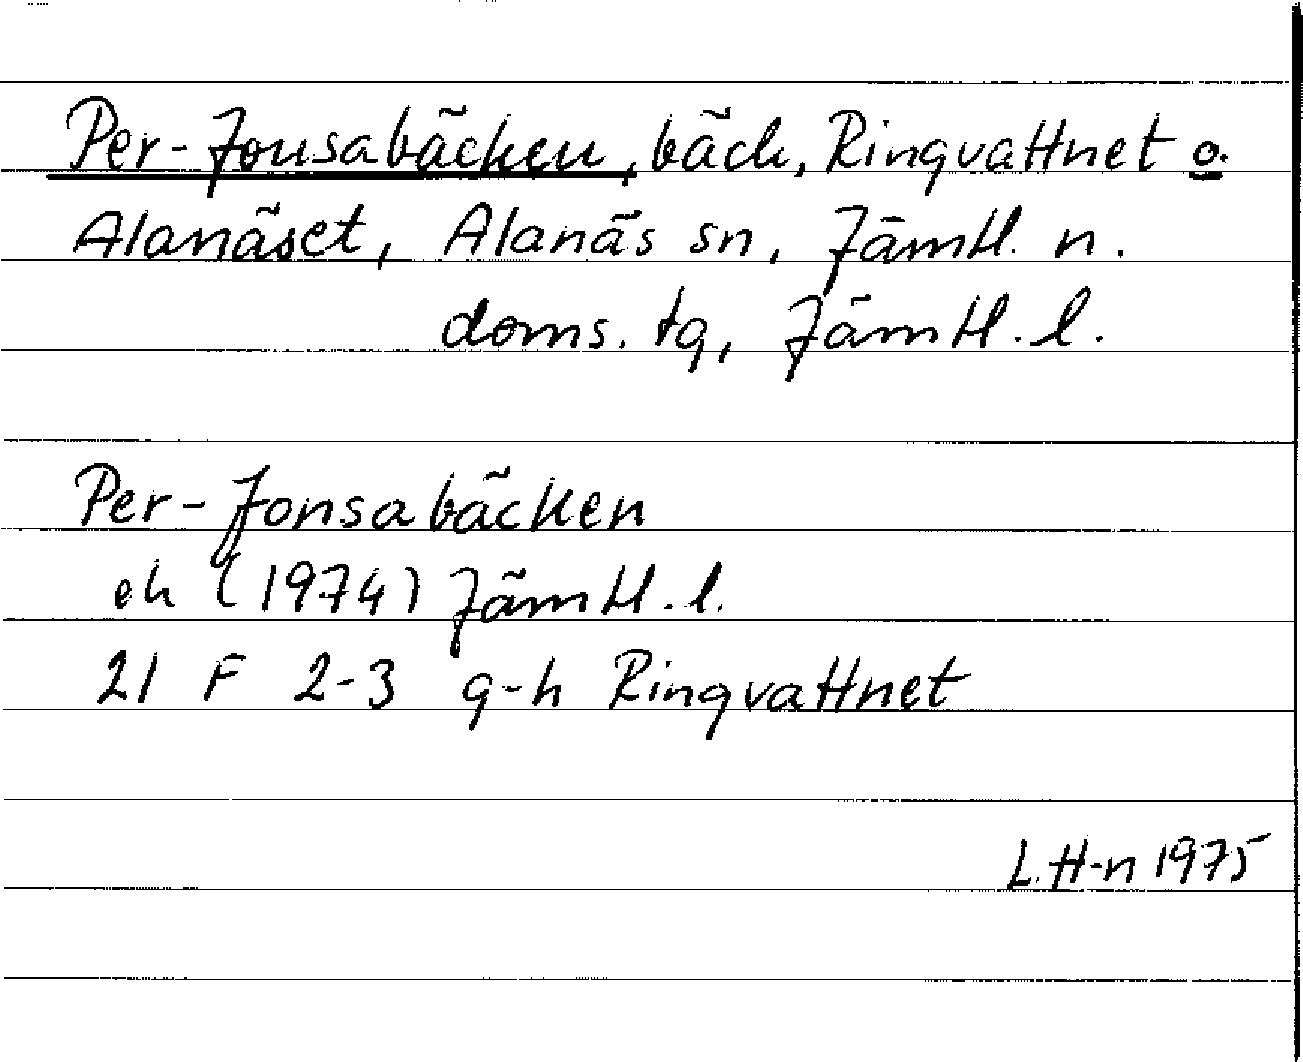 Per-Jonsabäcken, bäck, Ringvattnet o.
Alanäset, Alanäs sn, Jämtl. n.
doms. tg, Jämtl. l.
Per-Jonsabäcken
ek (1974) Jämtl. l.
21 F 2-3 g-h Ringvattnet
L. H-n 1975